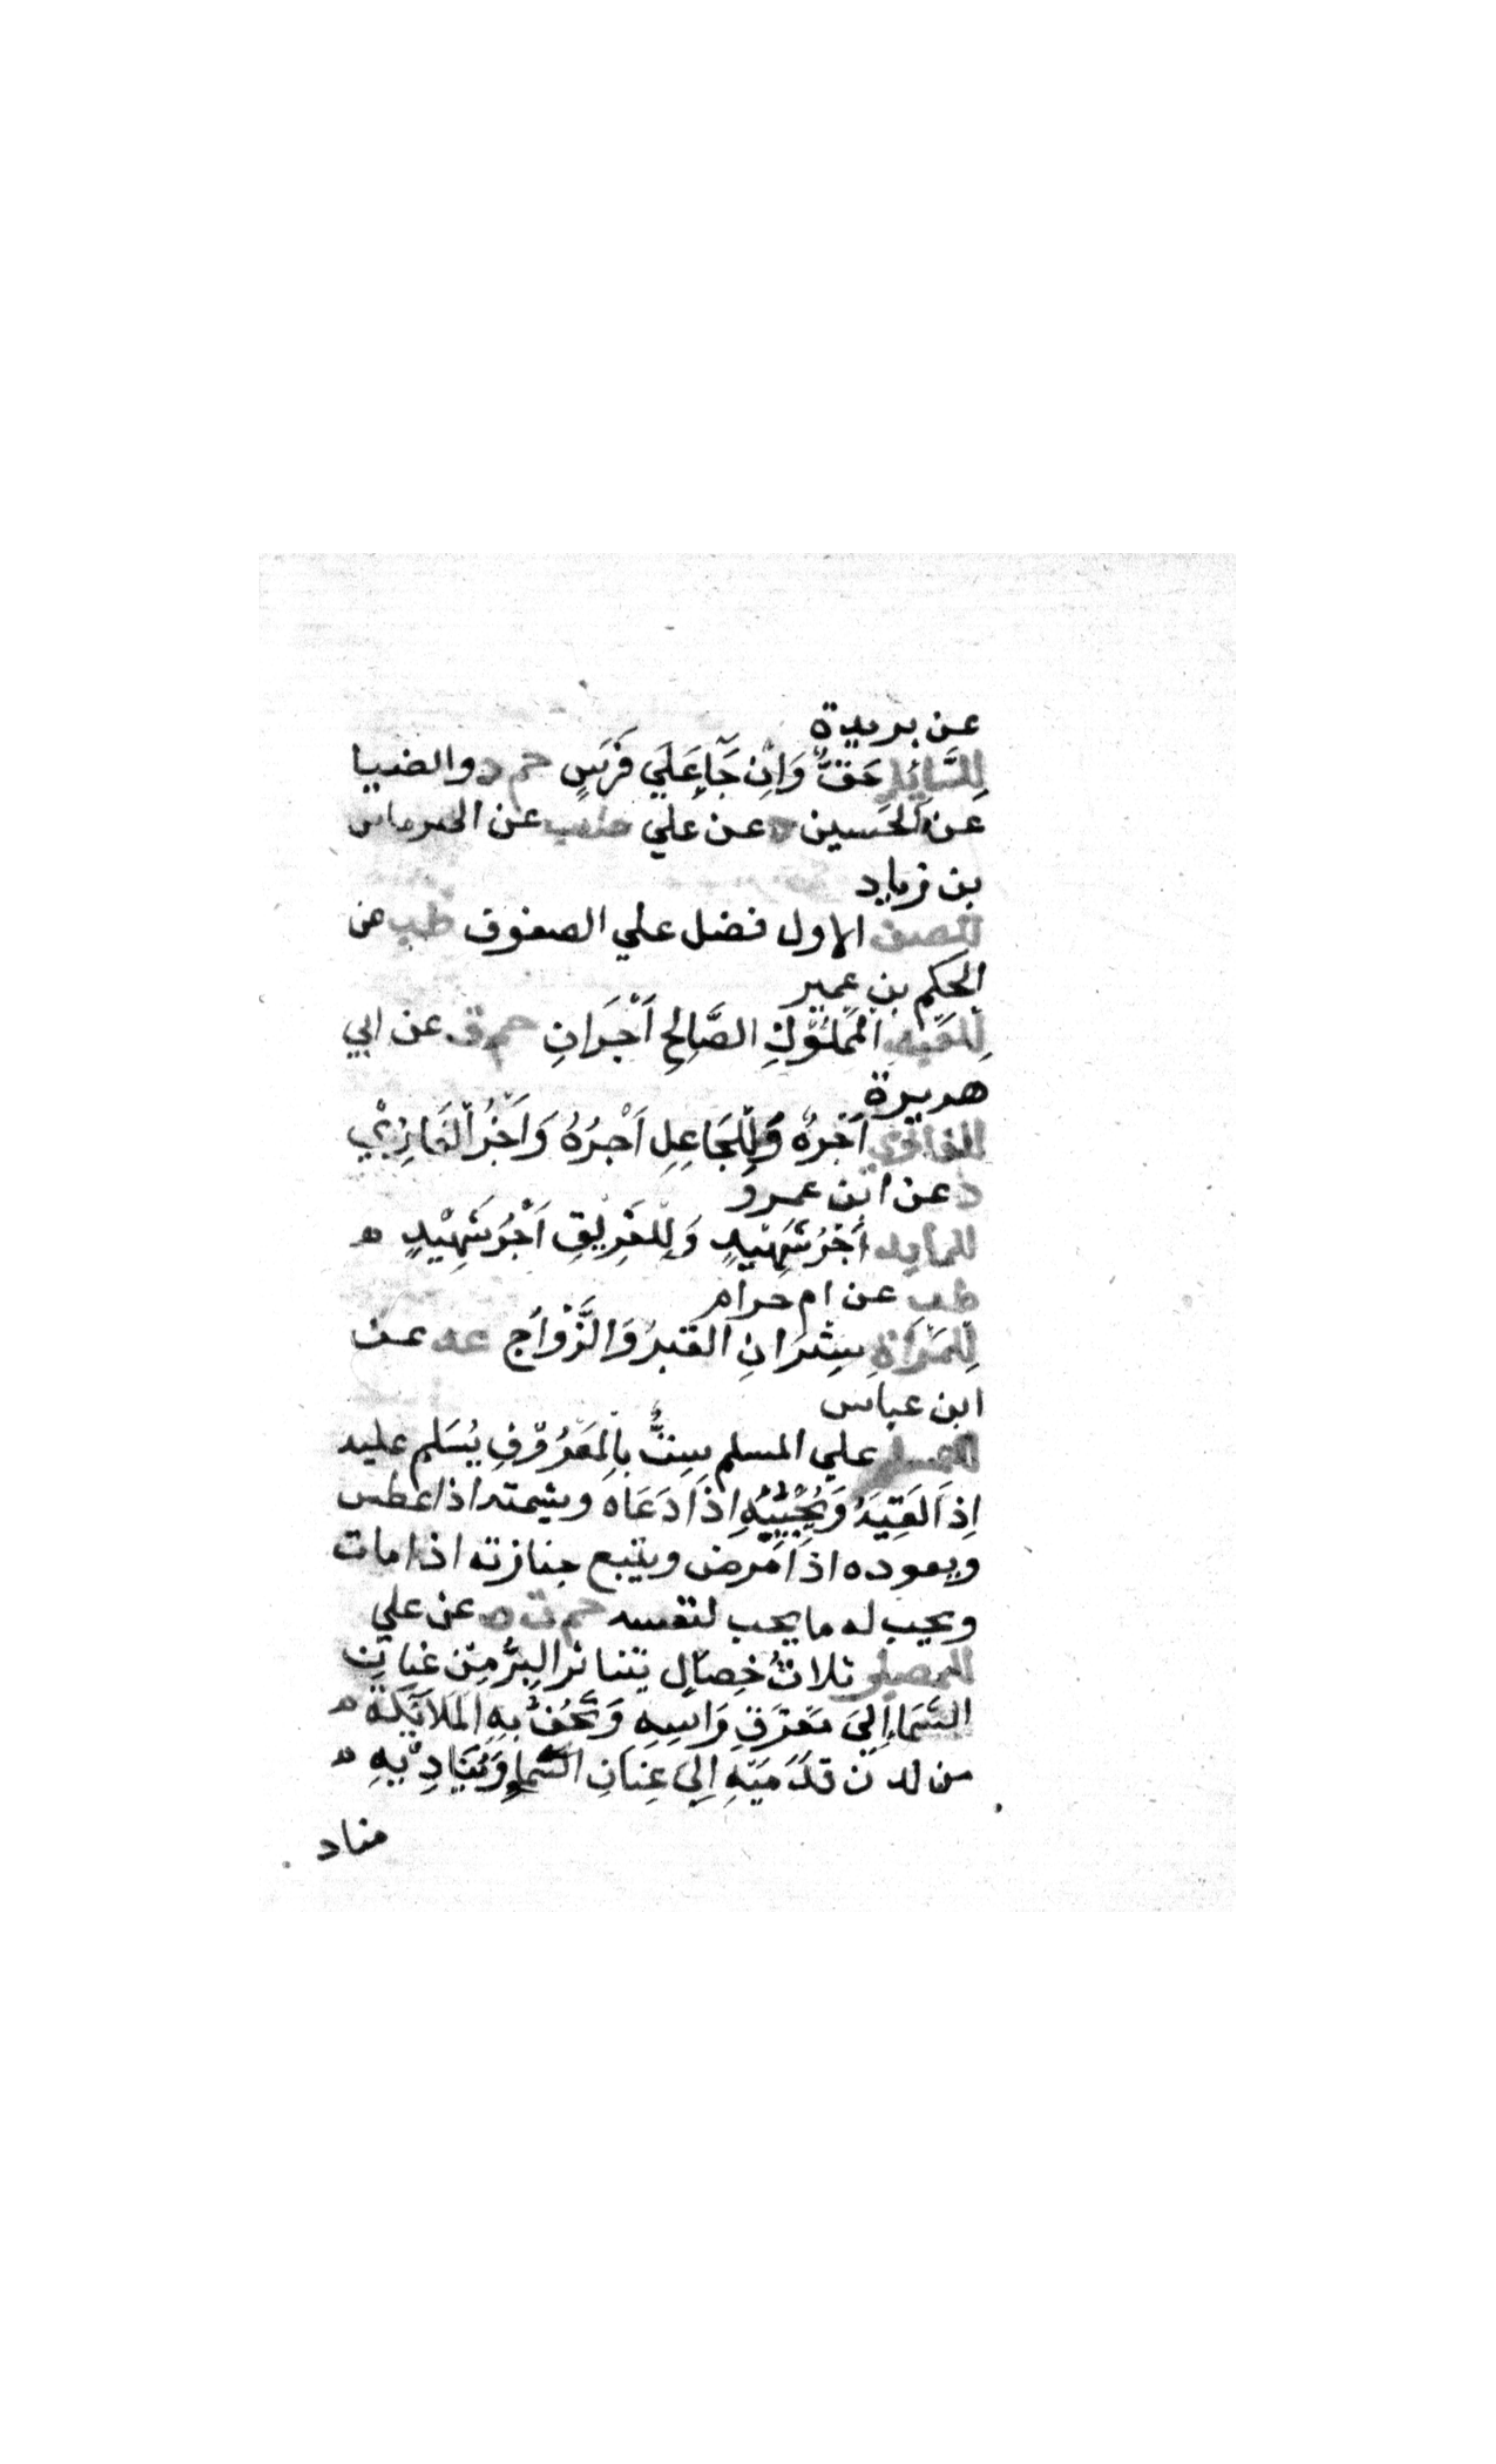 عن بريدة
لِلسَّائِلِ حَقٌّ وَاِنْ جَآءَ عَلَي فَرَسٍ حم د والضيا
عَن الحَسين د عن علي طب عن الهرماس
بن زياد
للصف الاول فضل علي الصفوف طب عن
الحكِم بن عمير
لِلعَبْدِ المَمْلُوْكِ الصَّالِحِ اَجْرَانِ حم ق عن ابي
هريرة
للغازي اَجْرُهُ وَلِلْجَاعِلِ اَجْرُهُ وَاَجْرُ الْغَازِيْ
د عن ابن عمرو
للمايد اَجْرُ شَهِيْدٍ وَلِلغَرِيْقِ اَجْرُ شَهِيْدٍ ه
طب عن ام حرام
لِلمَرْاَةِ سِتْرَانِ القَبْرُ وَالزَّوْاج عد عن
ابن عباس
للمسلم علي المسلم سِتٌّ بِالمَعْرُوْفِ يُسَلم عليه
اِذَا لَقِيَهُ وَيُجِيْبُهُ اِذَا دَعَاهُ ويشمته اذا عطس
ويعوده اذا مرض ويتبع جنازته اذا مات
ويحب له ما يحب لنفسه حم ت ه عن علي
للمصلي ثلاثُ خِصَالٍ يتناثر البِرُّ مِنْ عَنَانِ
السَّمَاءِ اِلَى مَفْرَقِ رَاسِهِ وَتَحُفُّ بِهِ المَلَآئِكَةُ ه
من لدن قَدَمَيْهِ اِلَى عِنَانِ السَّمَاءِ وَيُنَادِيْهِ ه
مناد